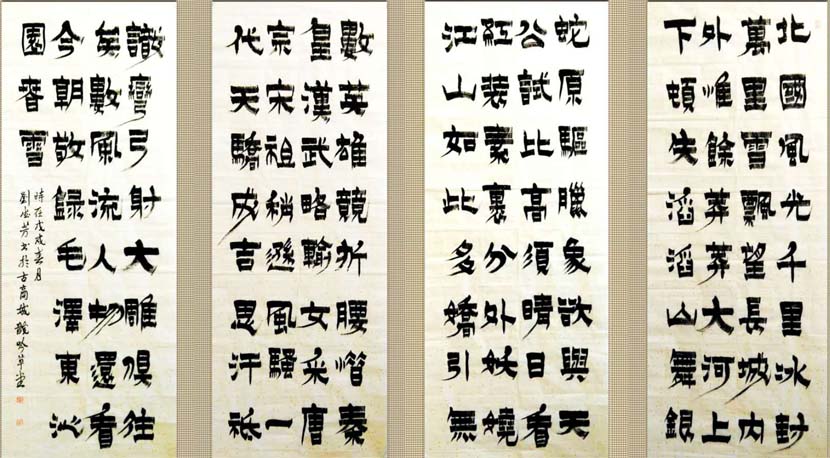 北國風光千里冰封
萬里雪飄望長城內
外惟餘莽莽大河上
下頓失滔滔山舞銀
蛇原驅臘象欲與天
公試比高須晴日看
紅裝素裹分外妖嬈
江山如此多嬌引無
數英雄競折腰惜秦
皇漢武略輸文采唐
宗宋祖稍遜風騷一
代天驕成吉思汗祗
識彎弓射大雕俱往
矣數風流人物還看
今朝敬錄毛澤東沁
園春雪
時在戊戌春月
劉芳書於古商城龍吟草堂